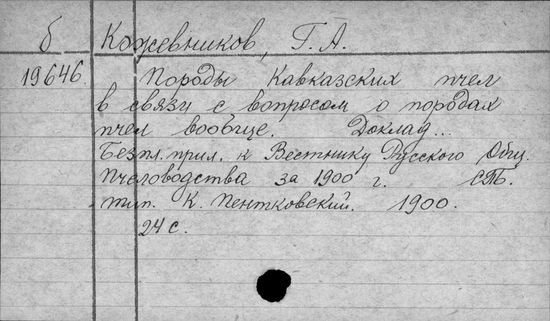 б Кожевников, Г. А.
19646. Породы Кавказских пчел
в связу с вопросом о породах
пчел вообще. Доклад...
Безпл. прил. к Вестнику Русского Общ.
Пчеловодства за 1900 г. СПб.
тип. К. Пентковский. 1900.
24 с.